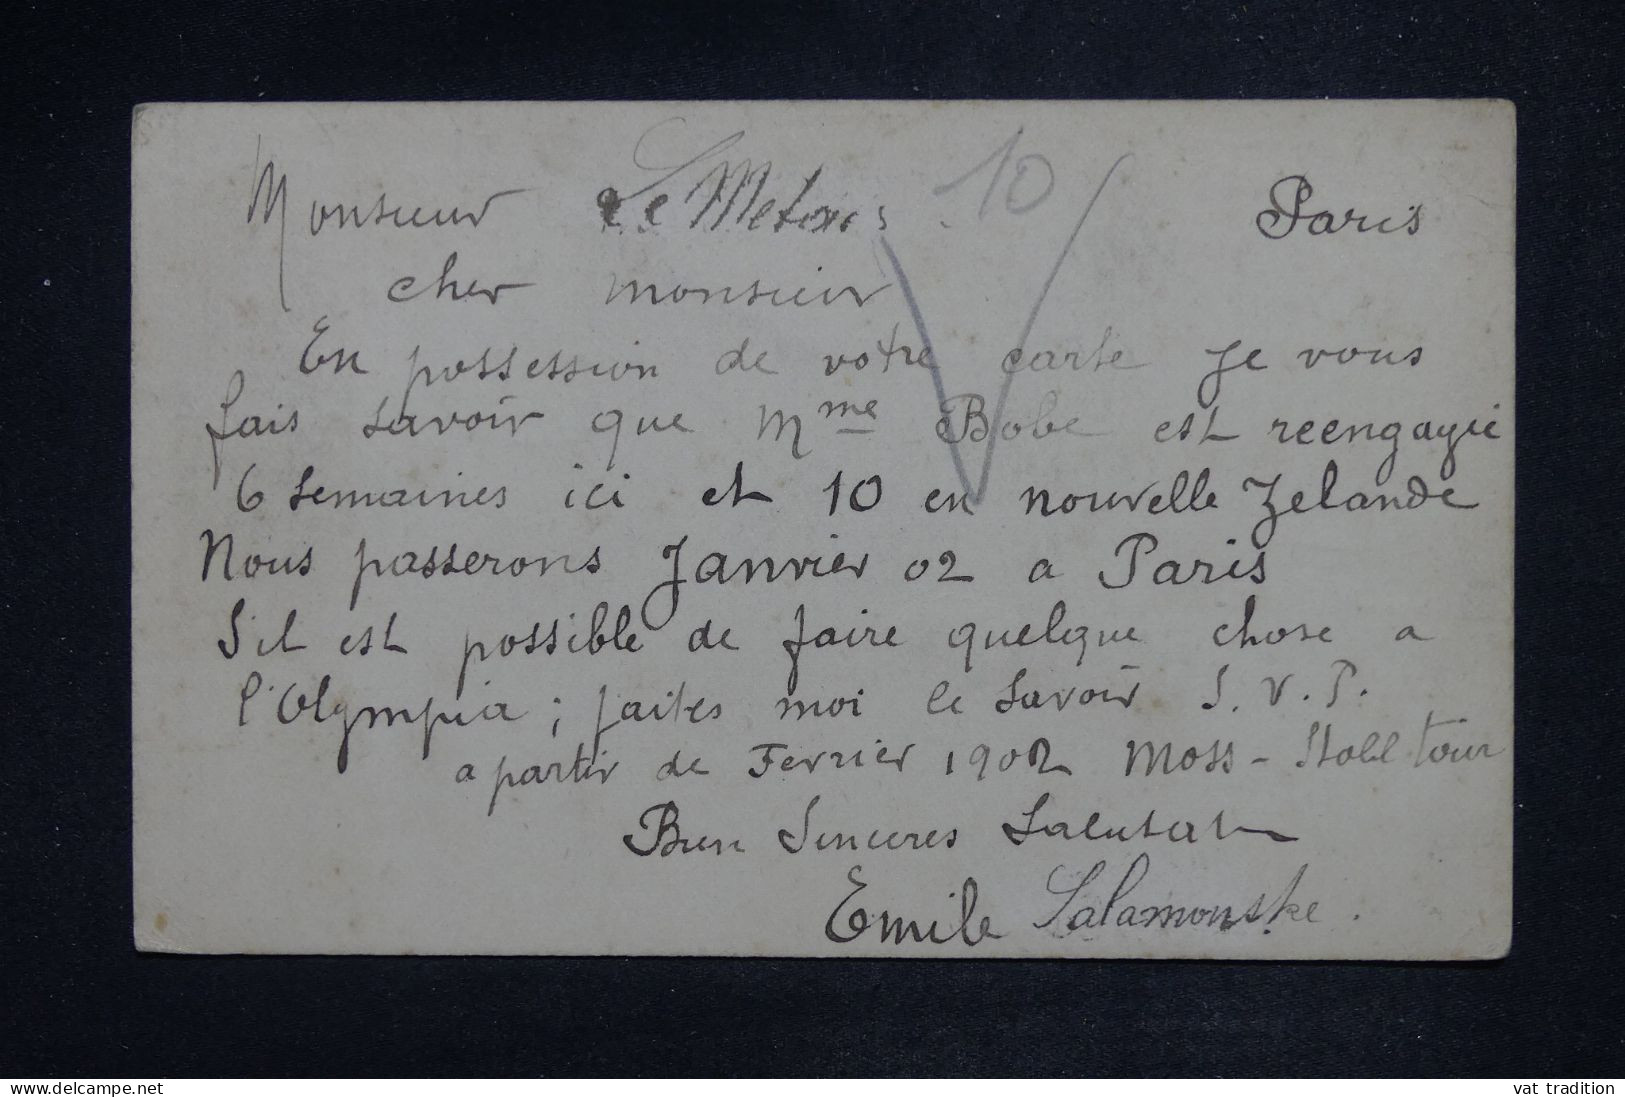 10
Monsieur Le Metais Paris
cher monsieur
En possession de votre carte je vous
fais savoir que Mme Bobe est reengagée
6 semaines ici et 10 en nouvelle Zelande
Nous passerons Janvier 02 a Paris
S'il est possible de faire quelque chose a
l'Olympia ; faites moi le savoir S. V. P.
a partir de Fevrier 1902 Moss - Stoll tour
Bien Sinceres Salutat
Emile
www.delcampe.net vat tradition